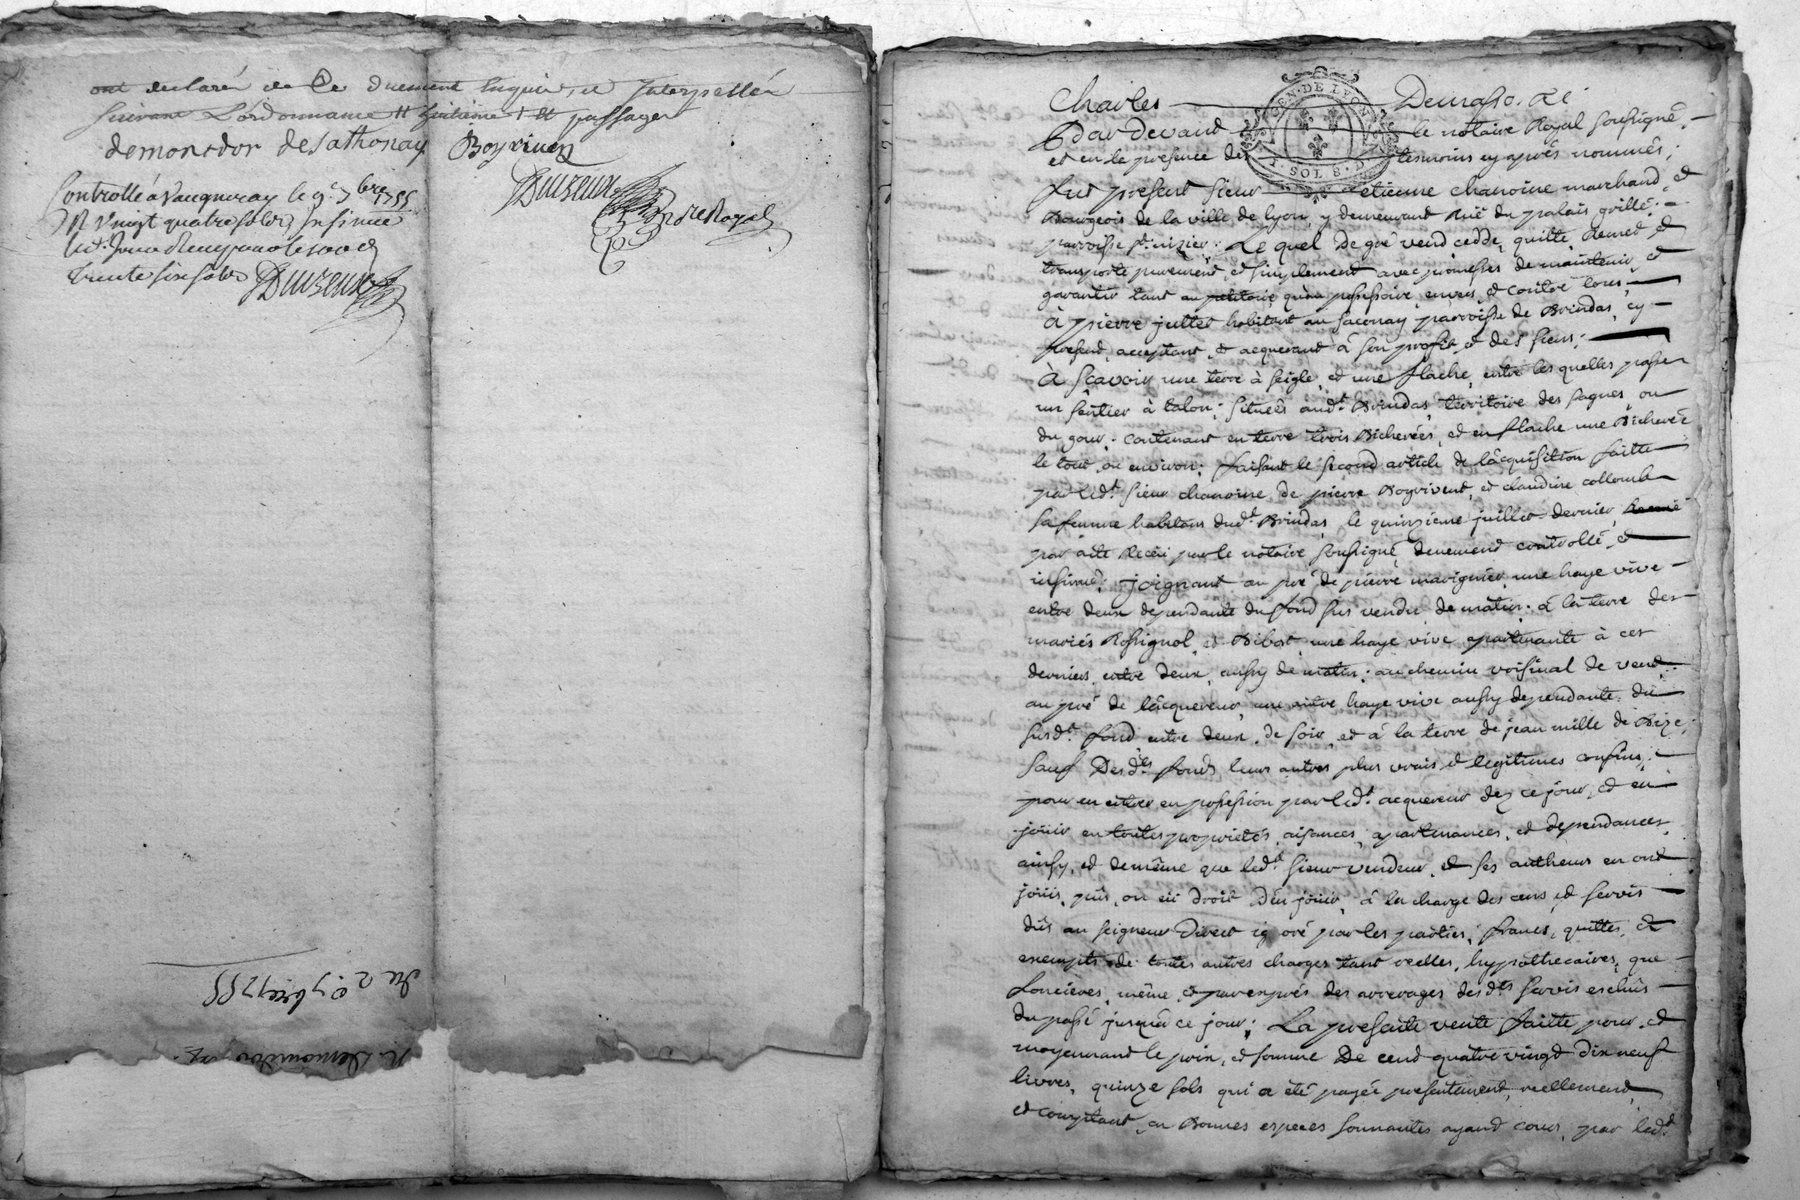 ont declaré de Ce duement Enquis, et Interpellés
suivant L'ordonnance
demondor de Sathonay Boyriven
Duizeux
Controllé à Vaugneray le 9e 7bre 1755
R vingt quatre sols Insinué
led. Jour
trente six sols Duizeux
du 2e 7bre 1755
Charles
Pardevant le notaire Royal soussigné,
et en la presence des tesmoins cy après nommés;
GEN. DE LYON
SOL 8.
fut present sieur etienne chanoine marchand, et
Bourgeois de la ville de lyon, y demeurant Ruë du palais grillé,
parroisse st. nizier; Lequel de gré vend cedde, quitte, Remet, et
transporte purement, et simplement avec promesses de maintenir, et
garantir tant au petitoire qu'au possessoire, envers, et contre tous,
à pierre juttet habitant au saconay parroisse de Brindas, cy
present, acceptant, et acquerant à son profit, et des siens;
à sçavoir une terre à seigle, et une flache, entre les quelles passe
un sentier à talon; situeés aud.t Brindas, territoire des fagnes, ou
du gour. contenant en terre trois Bicherées, et en flache une Bicherée
le tout ou environ; faisant le second article de l'acquisition faitte
par led.t sieur chanoine, de pierre Boyrivent, et claudine collomb
sa femme habitans dud.t Brindas, le quinzieme juillet dernier,
par acte Receu par le notaire soussigné, deuement controllé, et
insinué; joignant au pré de pierre marignier une haye vive
entre deux dependante du fond sus vendu de matin. à la terre des
mariés Rossignol, et Bibot, une haye vive apartenante à ces
derniers, entre deux, aussy de matin; au chemin voisinal de vent;
au pré de l'acquereur, une autre haye vive aussy dependante du
susd.t fond entre deux, de soir, et à la terre de jean mille de Bize;
sauf Desd.ts fonds leurs autres plus vrais, et legitimes confins,
pour en entrer en possession par led.t acquereur dez ce jour, et en
jouir en toutes proprietés, aisances, apartenances, et dependances,
ainsy, et de même que led.t sieur vendeur, et ses autheurs en ont
jouis, pûs, ou eû droit d'en jouir, à la charge des cens, et servis
dûs au seigneur Direct ig oré par les parties; francs, quittes, et
exempts de toutes autres charges tant reelles, hypothecaires, que
foncieres, même, et par exprés des arrerages desd.ts servis eschûs
du passé jusqu'à ce jour; La presente vente faitte pour, et
moyennant le prix, et somme De cent quatre vingt dix neuf
livres, quinze sols qui a eté payée presentement, reellement,
et comptant, en Bonnes especes sonnantes ayant cours, par led.t